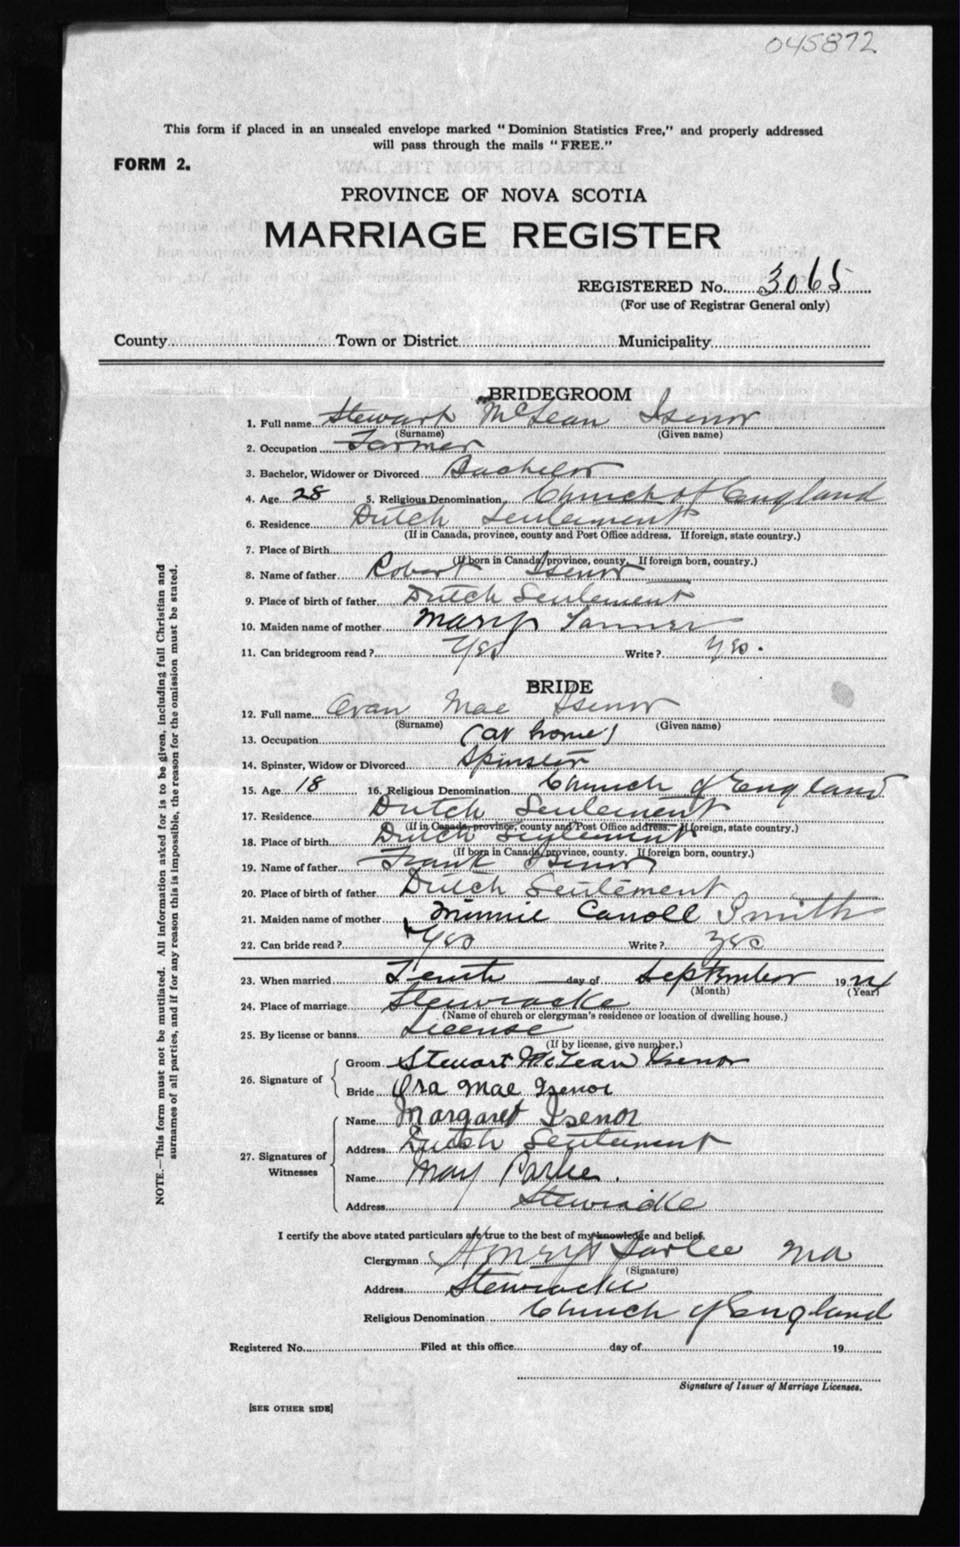 045872
This form if placed in an unsealed envelope marked "Dominion Statistics Free," and properly addressed
will pass through the mails "FREE."
FORM 2.
PROVINCE OF NOVA SCOTIA
MARRIAGE REGISTER
REGISTERED No. 3065
(For use of Registrar General only)
County Town or District Municipality
BRIDEGROOM
1. Full name Stewart McLean Isenor
(Surname) (Given name)
2. Occupation Farmer
3. Bachelor, Widower or Divorced Bachelor
4. Age 28 5. Religious Denomination Church of England
6. Residence Dutch Seulement
(If in Canada, province, county and Post Office address. If foreign, state country.)
7. Place of Birth
(If born in Canada, province, county. If foreign born, country.)
8. Name of father Robert Isenor
9. Place of birth of father Dutch Seulement
10. Maiden name of mother Mary Tanner
11. Can bridegroom read? Yes Write? Yes.
BRIDE
12. Full name Mae Isenor
(Surname) (Given name)
13. Occupation (at home)
14. Spinster, Widow or Divorced Spinster
15. Age 18 16. Religious Denomination Church of England
17. Residence Dutch Seulement
(If in Canada, province, county and Post Office address. If foreign, state country.)
18. Place of birth Dutch Seulement
(If born in Canada, province, county. If foreign born, country.)
19. Name of father Frank Isenor
20. Place of birth of father Dutch Seulement
21. Maiden name of mother Minnie Carroll Smith
22. Can bride read? Yes Write? Yes
23. When married Tenth day of September 1924
(Month) (Year)
24. Place of marriage Stewiacke
(Name of church or clergyman's residence or location of dwelling house.)
25. By license or banns License
(If by license, give number.)
26. Signature of
Groom Stewart McLean Isenor
Bride Ora Mae Isenor
27. Signatures of Witnesses
Name Margaret Isenor
Address Dutch Seulement
Name May
Address Stewiacke
I certify the above stated particulars are true to the best of my knowledge and belief.
Clergyman MA
(Signature)
Address Stewiacke
Religious Denomination Church of England
Registered No. Filed at this office day of 19
Signature of Issuer of Marriage Licenses.
[SEE OTHER SIDE]
NOTE.—This form must not be mutilated. All information asked for is to be given, including full Christian and
surnames of all parties, and if for any reason this is impossible, the reason for the omission must be stated.